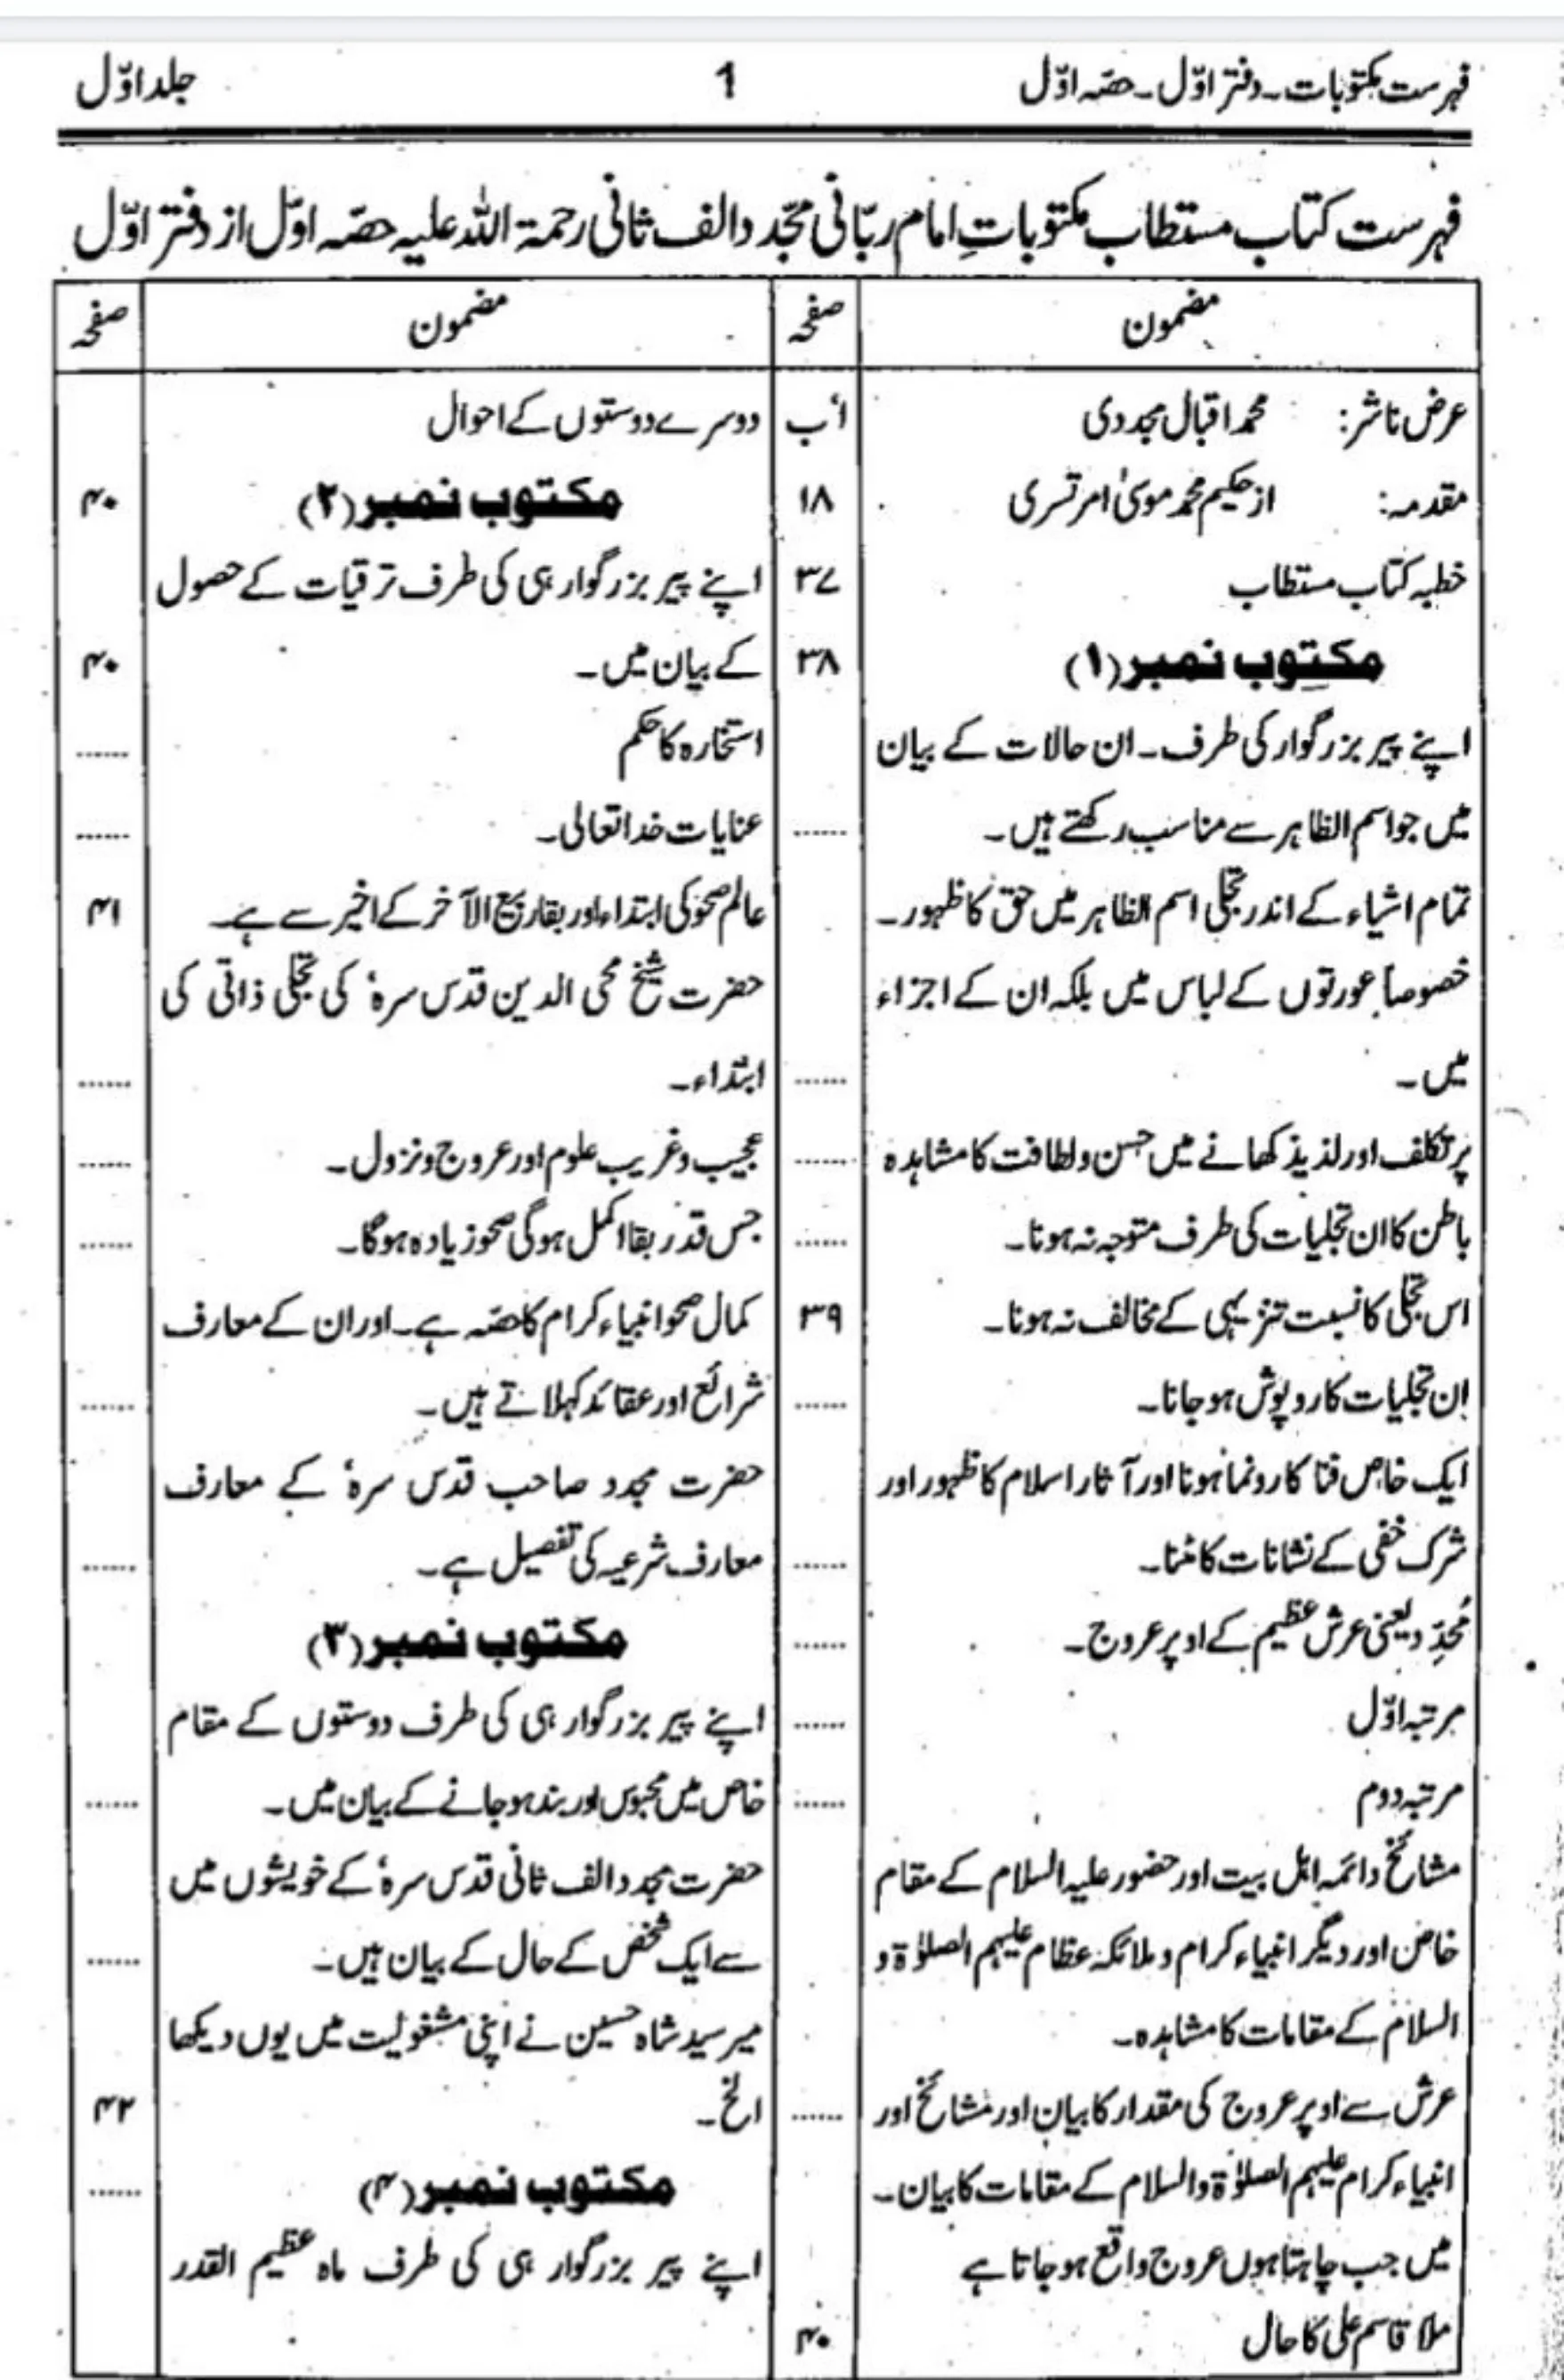 فہرست مکتوبات۔ دفتر اوّل۔ حصّہ اوّل
1
جلد اوّل
فہرست کتاب مستطاب مکتوباتِ امام ربّانی مجدّد الف ثانی رحمۃ اللہ علیہ حصّہ اوّل از دفتر اوّل
مضمون صفحہ
عرض ناشر: محمد اقبال مجددی أب
مقدمہ: از حکیم محمد موسیٰ امرتسری ۱۸
خطبہ کتاب مستطاب ۳۷
مکتوب نمبر (۱) ۳۸
اپنے پیر بزرگوار کی طرف۔ ان حالات کے بیان
میں جو اسم الظاہر سے مناسب رکھتے ہیں۔ ......
تمام اشیاء کے اندر تجلی اسم الظاہر میں حق کا ظہور۔
خصوصاً عورتوں کے لباس میں بلکہ ان کے اجزاء
میں۔ ......
پر تکلف اور لذیذ کھانے میں حسن و لطافت کا مشاہدہ ......
باطن کا ان تجلیات کی طرف متوجہ نہ ہونا۔ ......
اس تجلی کا نسبت تنزیہی کے مخالف نہ ہونا۔ ۳۹
اِن تجلیات کا روپوش ہو جانا۔ ......
ایک خاص فنا کا رونما ہونا اور آثار اسلام کا ظہور اور
شرک خفی کے نشانات کا مٹنا۔ ......
مُحدِّد یعنی عرش عظیم کے اوپر عروج۔ ......
مرتبہ اوّل ......
مرتبہ دوم ......
مشائخ و ائمہ اہل بیت اور حضور علیہ السلام کے مقام
خاص اور دیگر انبیاء کرام و ملائکہ عظام علیہم الصلوٰۃ و
السلام کے مقامات کا مشاہدہ۔
عرش سے اوپر عروج کی مقدار کا بیان اور مشائخ اور ......
انبیاء کرام علیہم الصلوٰۃ والسلام کے مقامات کا بیان۔
میں جب چاہتا ہوں عروج واقع ہو جاتا ہے
ملا قاسم علی کا حال ۴۰
مضمون صفحہ
دوسرے دوستوں کے احوال
مکتوب نمبر (۲) ۴۰
اپنے پیر بزرگوار ہی کی طرف ترقیات کے حصول
کے بیان میں۔ ۴۰
استخارہ کا حکم ......
عنایات خدا تعالی۔ ......
عالم صحو کی ابتداء اور بقا ربیع الآخر کے اخیر سے ہے۔ ۴۱
حضرت شیخ محی الدین قدس سرہٗ کی تجلی ذاتی کی
ابتداء۔ ......
عجیب و غریب علوم اور عروج و نزول۔ ......
جس قدر بقا اکمل ہوگی صحو زیادہ ہوگا۔ ......
کمال صحو انبیاء کرام کا حصّہ ہے۔ اور ان کے معارف
شرائع اور عقائد کہلاتے ہیں۔ ......
حضرت مجدد صاحب قدس سرہٗ کے معارف
معارف شرعیہ کی تفصیل ہے۔ ......
مکتوب نمبر (۳)
اپنے پیر بزرگوار ہی کی طرف دوستوں کے مقام
خاص میں محبوس اور بند ہو جانے کے بیان میں۔ ......
حضرت مجدد الف ثانی قدس سرہٗ کے خویشوں میں
سے ایک شخص کے حال کے بیان ہیں۔ ......
میر سید شاہ حسین نے اپنی مشغولیت میں یوں دیکھا
الخ۔ ۴۲
مکتوب نمبر (۴) ......
اپنے پیر بزرگوار ہی کی طرف ماہ عظیم القدر